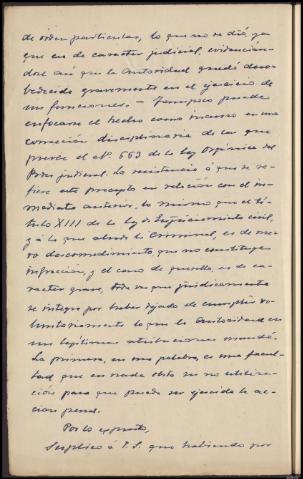 de orden particular, lo que no se dió, ya
que era de caracter judicial, evidencián-
dose así que la autoridad quedó deso-
bedecida gravemente en el ejercicio de
sus funciones. — Tampoco puede
enfocarse el hecho como incurso en una
corrección disciplinaria de las que
prevee el art. 663 de la ley Orgánica del
Poder judicial. La resistencia á que se re-
fiere este precepto en relación con el in-
mediato anterior, lo mismo que el tí-
tulo XIII de la ley de Enjuiciamiento civil,
y á lo que alude la Criminal, es de me-
ro desconocimiento que no constituye
infracción, y el caso de querella, es de ca-
racter grave, toda vez que jurídicamente
se integra por haber dejado de cumplir vo-
luntariamente lo que la Autoridad en
sus legítimas atribuciones mandó.
La primera, en una palabra, es una facul-
tad que en nada obsta su no utiliza-
ción para que pueda ser ejercida la ac-
ción penal.
Por lo expuesto,
Suplico á V.S. que habiendo por